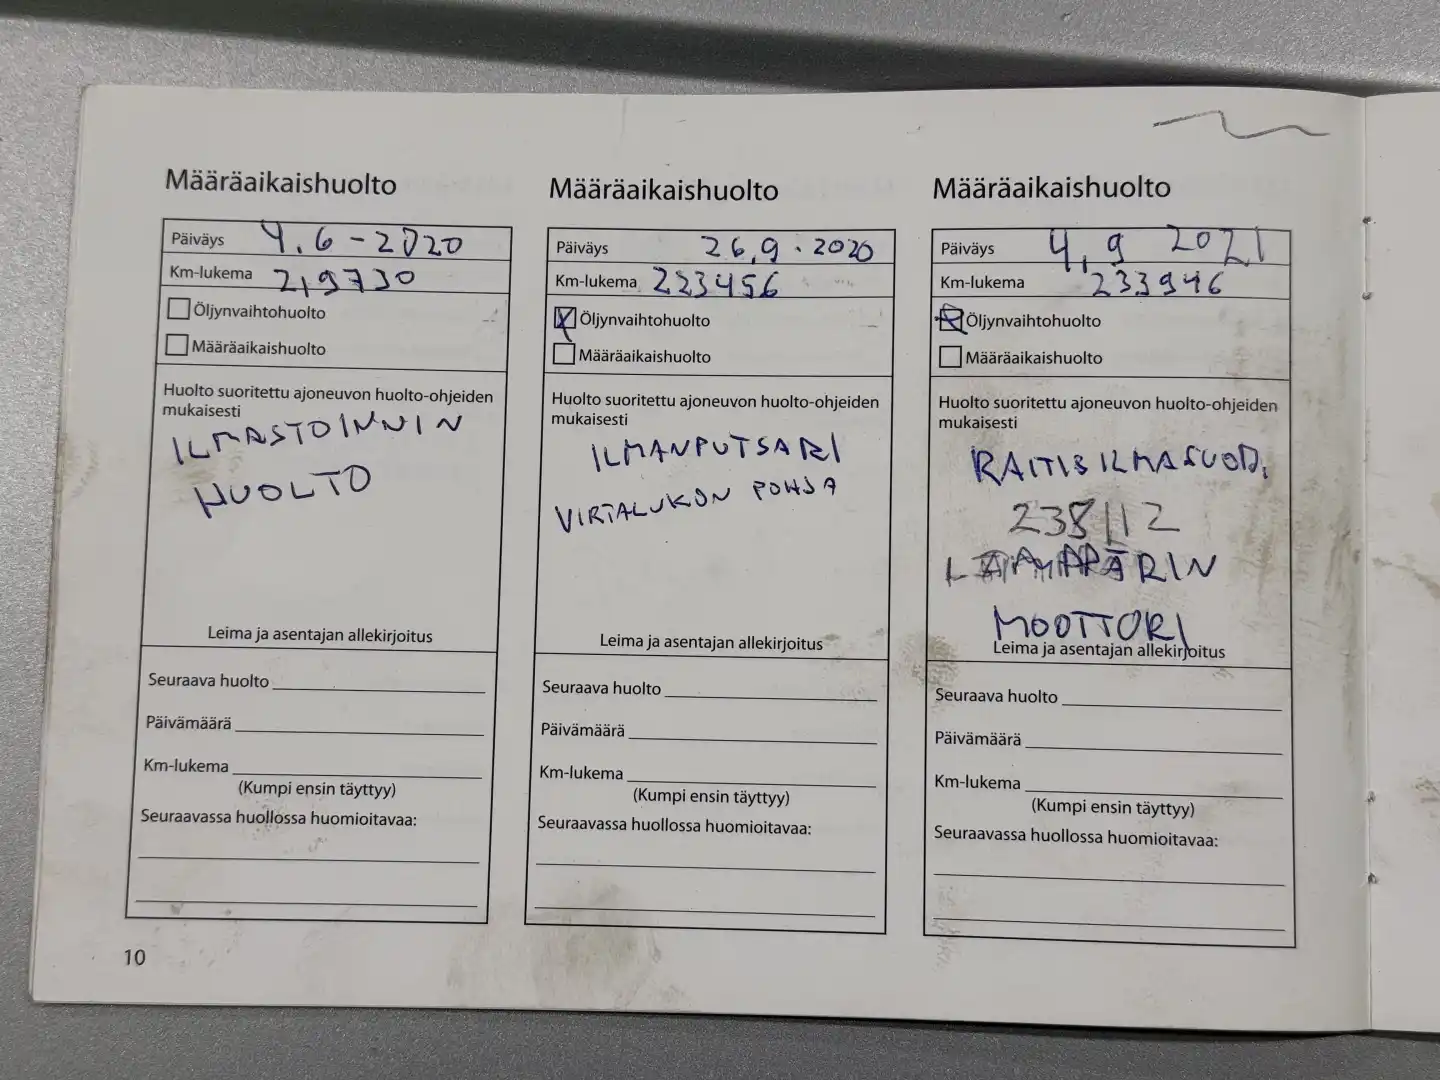 Määräaikaishuolto
Päiväys 4.6-2020
Km-lukema 219730
Öljynvaihtohuolto
Määräaikaishuolto
Huolto suoritettu ajoneuvon huolto-ohjeiden
mukaisesti
ILMASTOINNIN
HUOLTO
Leima ja asentajan allekirjoitus
Seuraava huolto
Päivämäärä
Km-lukema
(Kumpi ensin täyttyy)
Seuraavassa huollossa huomioitavaa:
Määräaikaishuolto
Päiväys 26.9.2020
Km-lukema 223456
Öljynvaihtohuolto
Määräaikaishuolto
Huolto suoritettu ajoneuvon huolto-ohjeiden
mukaisesti
ILMANPUTSARI
VIRTALUKON POHJA
Leima ja asentajan allekirjoitus
Seuraava huolto
Päivämäärä
Km-lukema
(Kumpi ensin täyttyy)
Seuraavassa huollossa huomioitavaa:
Määräaikaishuolto
Päiväys 4,9 2021
Km-lukema 233946
Öljynvaihtohuolto
Määräaikaishuolto
Huolto suoritettu ajoneuvon huolto-ohjeiden
mukaisesti
RAITISILMASUOD.
238112
MOOTTORI
Leima ja asentajan allekirjoitus
Seuraava huolto
Päivämäärä
Km-lukema
(Kumpi ensin täyttyy)
Seuraavassa huollossa huomioitavaa:
10